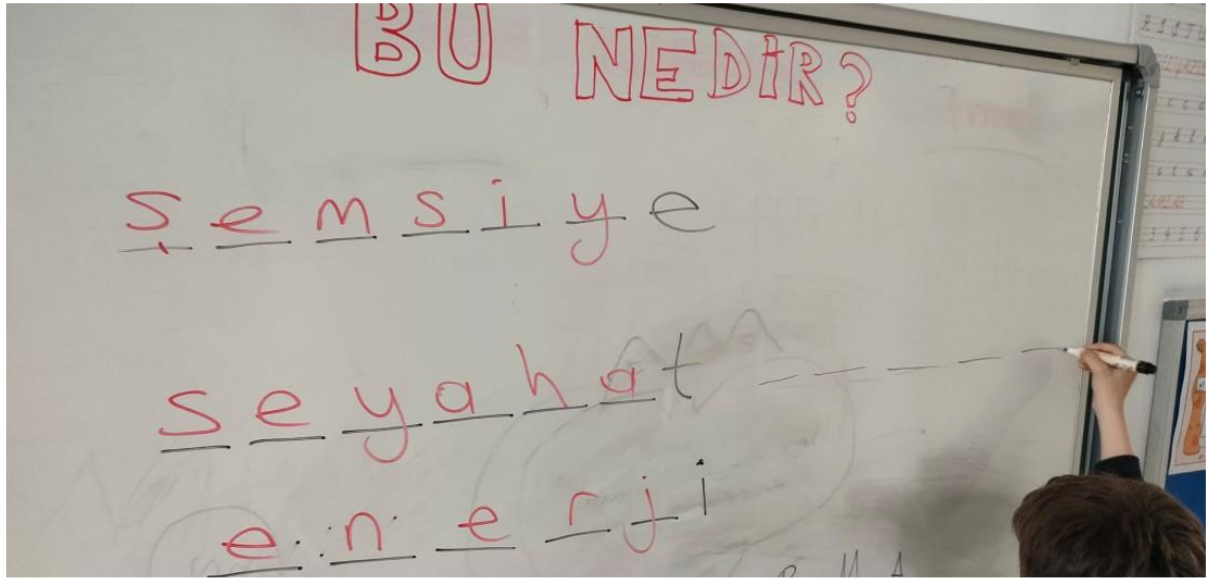 BU NEDİR?
şemsiye
seyahat _ _ _ _ _
enerji